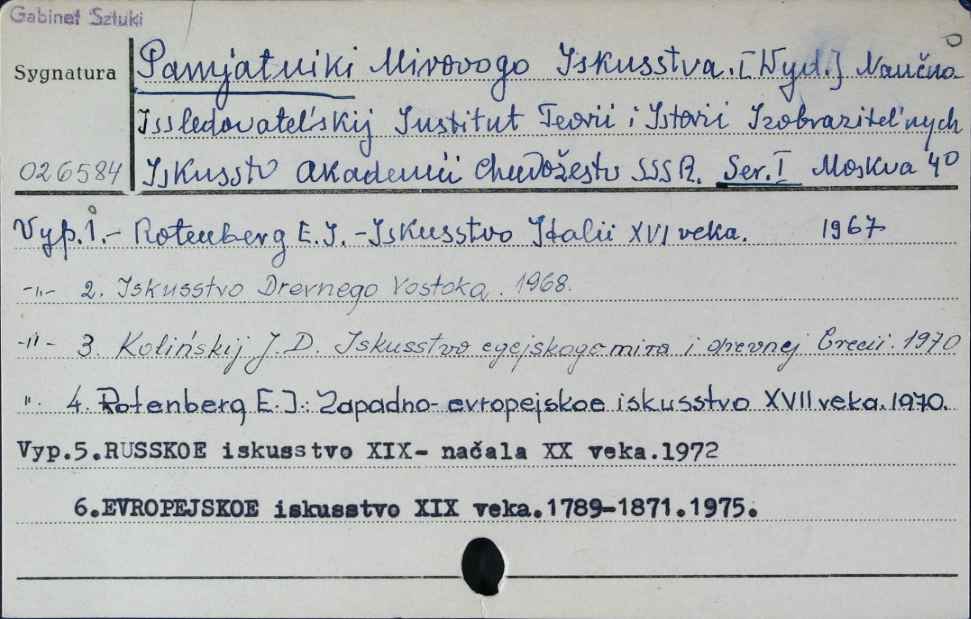 Gabinet Sztuki
Sygnatura
026584
Pamjatniki Mirovogo Iskusstva. [Wyd.] Naučno
Issledovatel'skij Institut Teorii i Istorii Izobrazitel'nych
Iskusstv Akademii Chudožestv SSSR. Ser. I Moskva 4⁰
Vyp. 1. - Rotenberg E. I. - Iskusstvo Italii XVI veka. 1967
-"- 2. Iskusstvo Drevnego Vostoka. 1968.
-"- 3. Kolińskij J. D. Iskusstvo egejskogo mira i drevnej Grecii. 1970
". 4. Rotenberg E. I.: Zapadno-evropejskoe iskusstvo XVII veka. 1970.
Vyp.5.RUSSKOE iskusstvo XIX- načala XX veka.1972
6.EVROPEJSKOE iskusstvo XIX veka.1789-1871.1975.